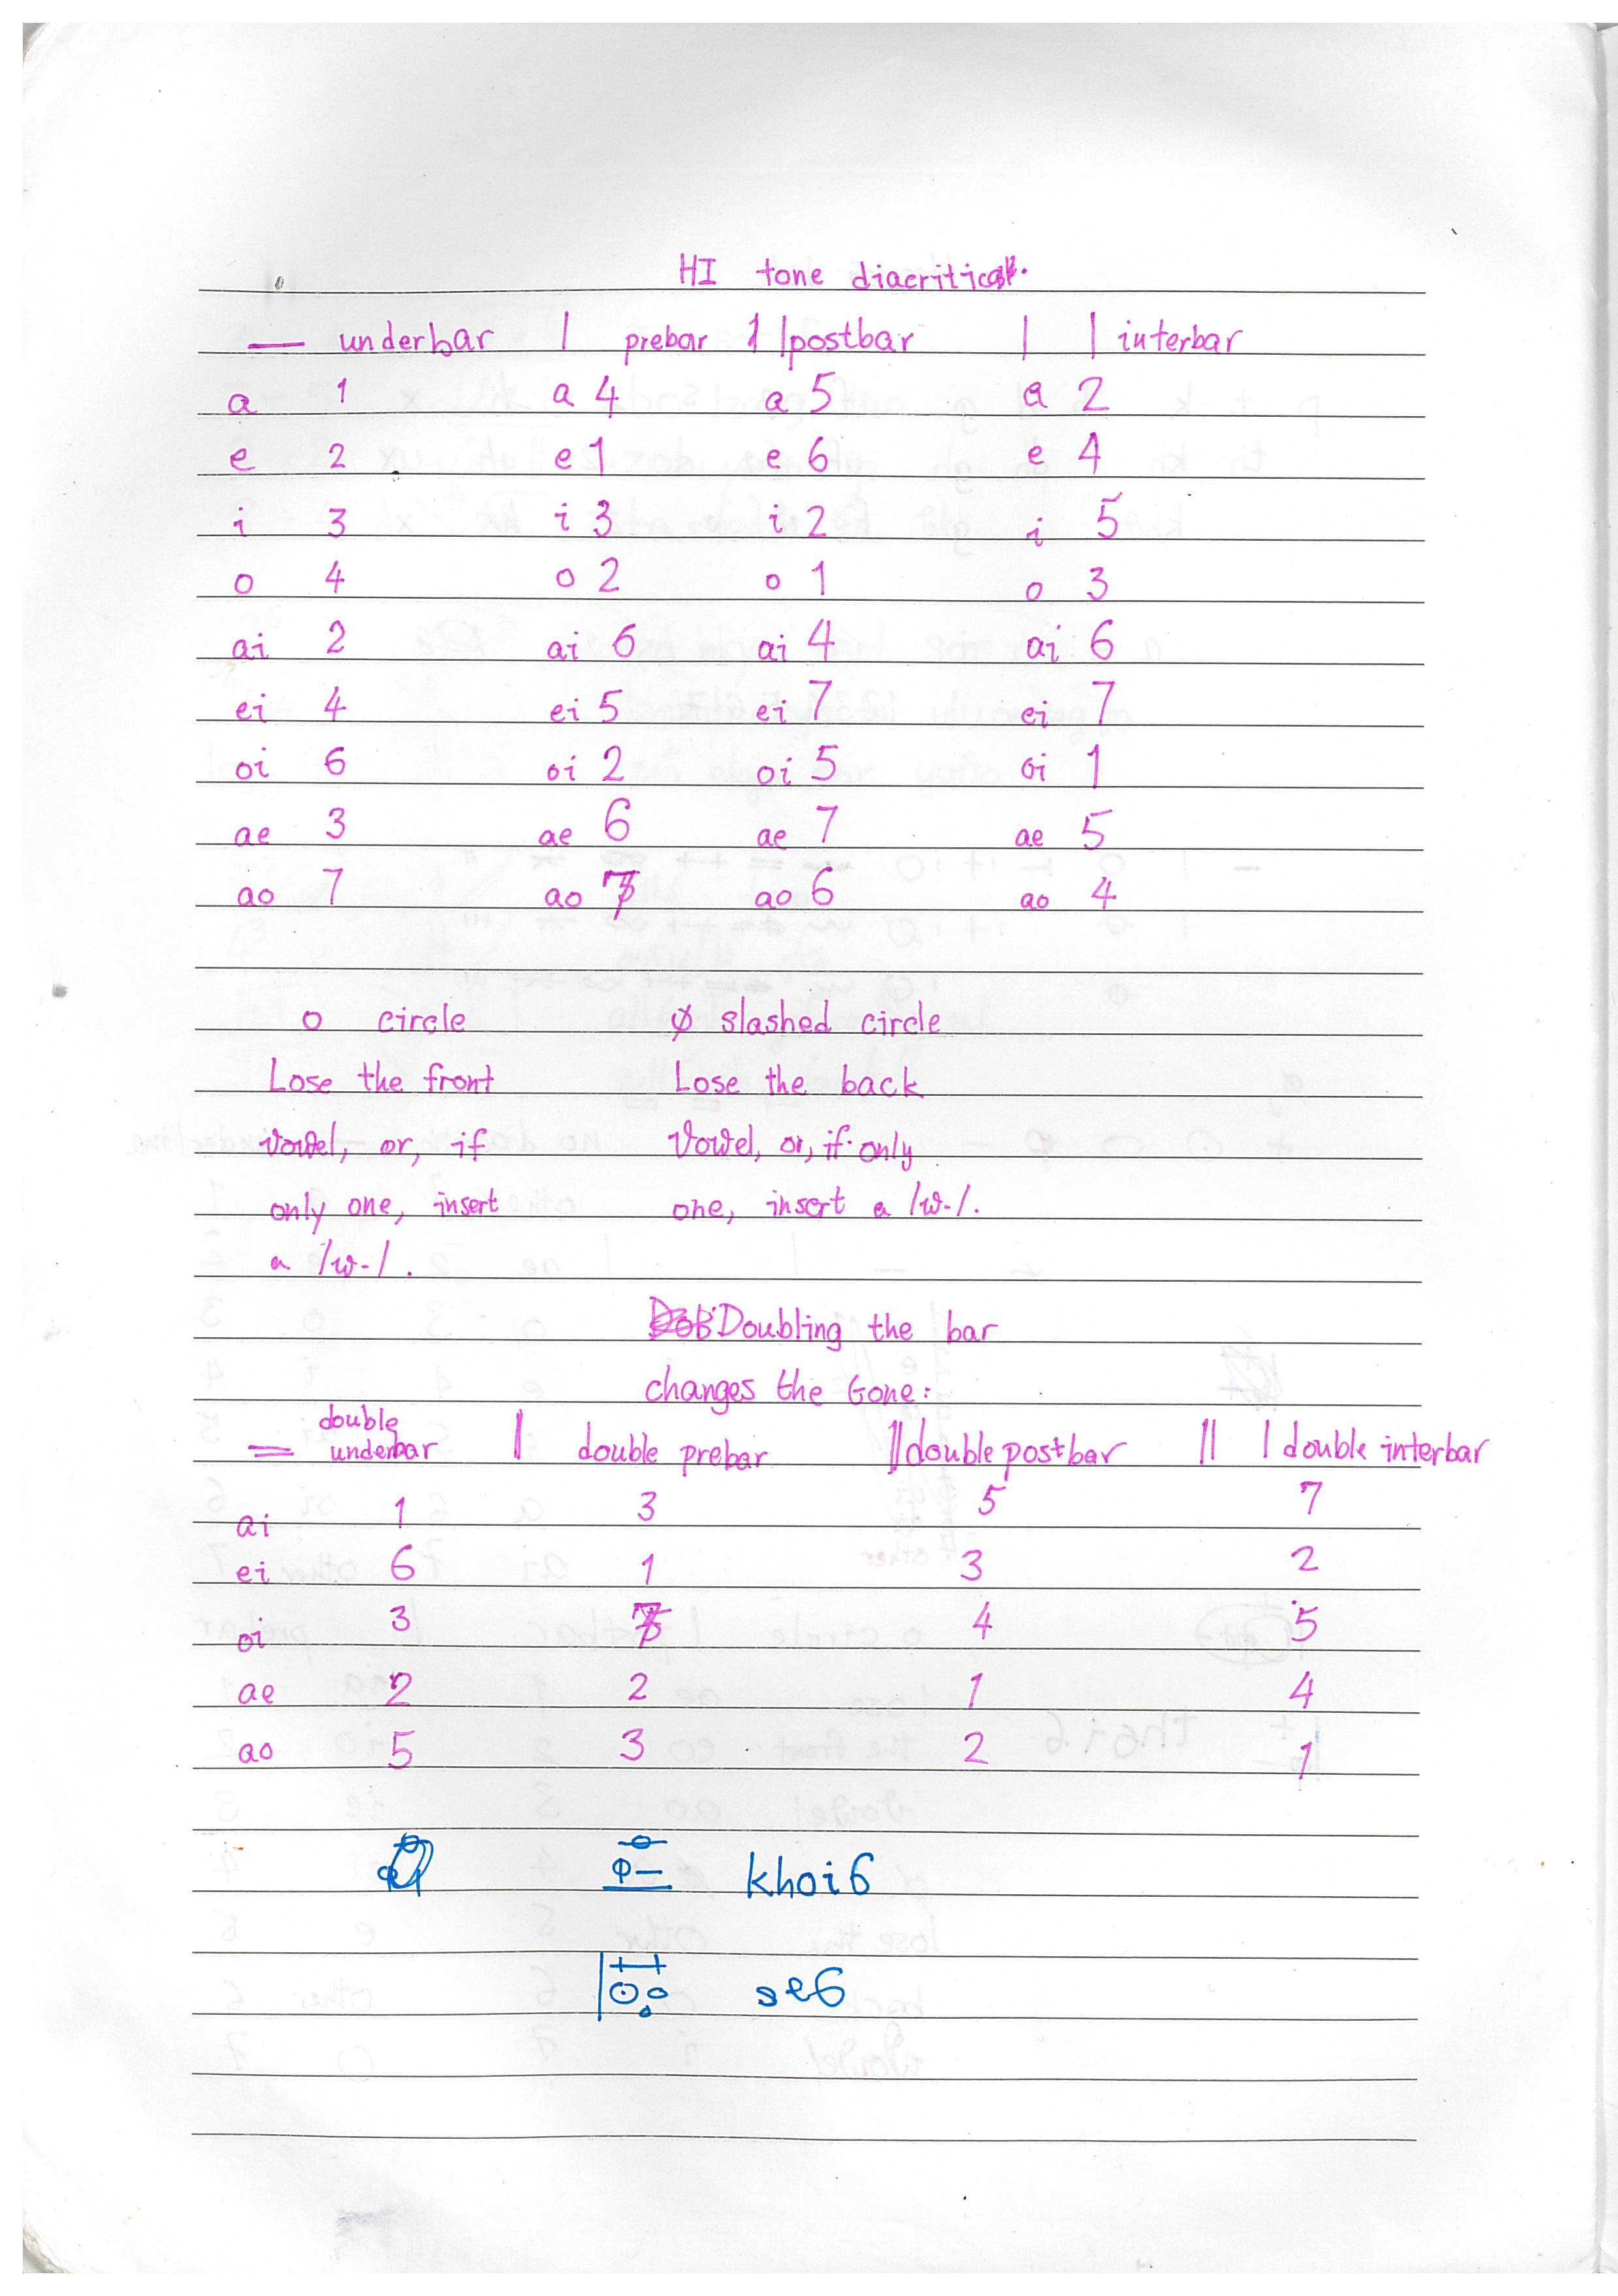 HI tone diacritics.
— underbar | prebar | |postbar | | interbar
a 1 a 4 a 5 a 2
e 2 e 1 e 6 e 4
i 3 i 3 i 2 i 5
o 4 o 2 o 1 o 3
ai 2 ai 6 ai 4 ai 6
ei 4 ei 5 ei 7 ei 7
oi 6 oi 2 oi 5 oi 1
ae 3 ae 6 ae 7 ae 5
ao 7 ao ao 6 ao 4
o circle ∅ slashed circle
Lose the front Lose the back
vowel, or, if vowel, or, if only
only one, insert one, insert a /w-/.
a /w-/.
Doubling the bar
changes the tone:
= double underbar || double prebar ||double postbar || | double interbar
ai 1 3 5 7
ei 6 1 3 2
oi 3 4 5
ae 2 2 1 4
ao 5 3 2 1
khoi6
se6